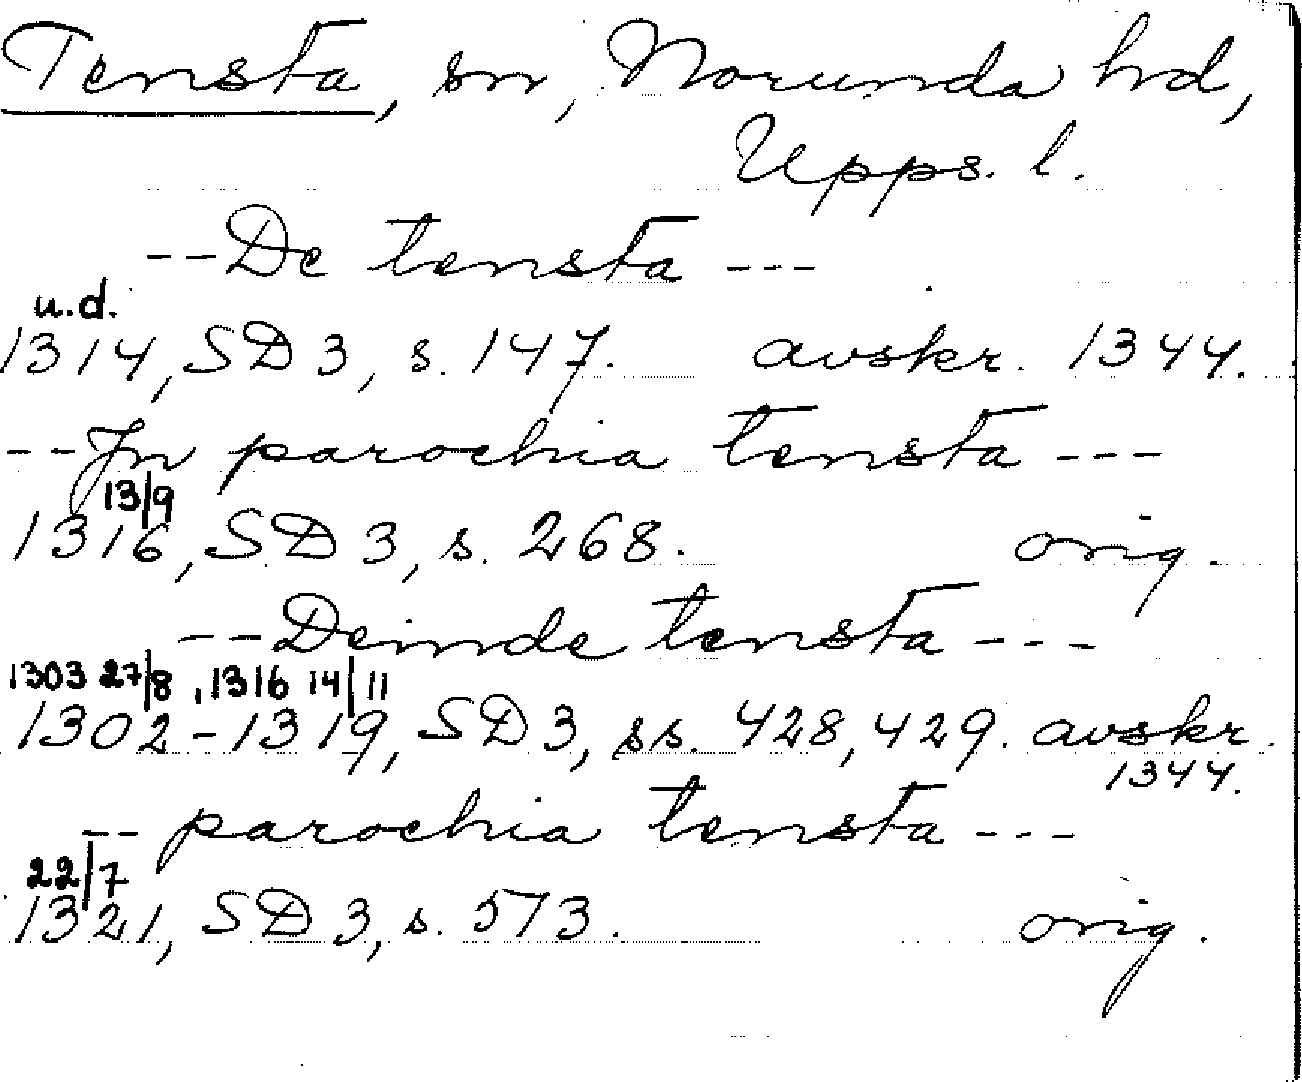 Tensta, sn, Norunda hd,
Upps. l.
--De tensta ---
u.d.
1314, SD 3, s. 147. avskr. 1344.
--Jn parochia tensta ---
13/9
1316, SD 3, s. 268. orig.
--Deinde tensta ---
1303 27/8, 1316 14/11
1302-1319, SD 3, ss. 428, 429. avskr.
1344.
-- parochia tensta ---
22/7
1321, SD 3, s. 573. orig.